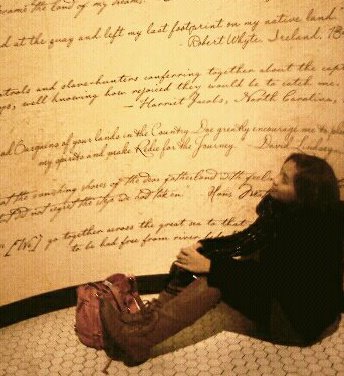 the land of my dreams.
d at the quay and left my last footprint on my native land.
- Robert Whyte, Ireland, 18
atrols and slave-hunters conferring together about the cap
ys, well knowing how rejoiced they would be to catch me.
- Harriet Jacobs, North Carolina,
al Bargains of your lands in the Country Doe greatly encourage me to
my spirits and make Redie for the Journey. David Lindsey
at the vanishing shores of the dear fatherland with feel
not regret the step we had taken. Hans
e [We] go together across the great sea to that
to be had free from river